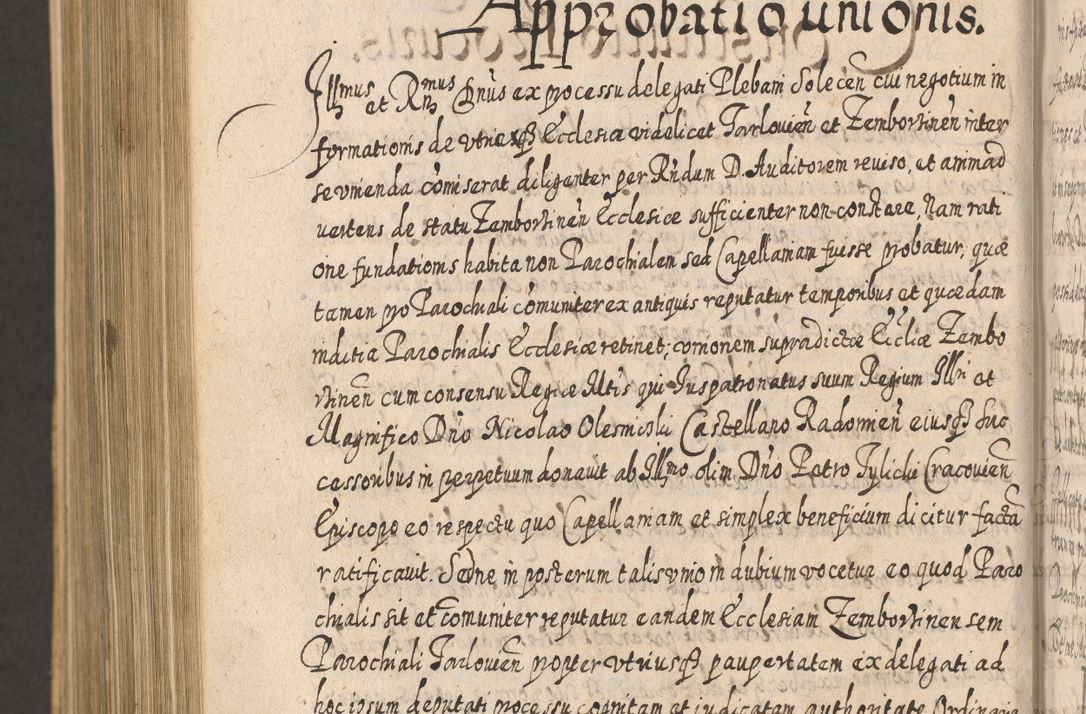 Approbatio unionis.
Illmus et Rmus Dnus ex processu delegati Plebani Solecen cui negotium in
formationis de utriusq Ecclesia videlicet Tarlovien et Zemborinen inter
se unienda comiserat diligenter per Rndum D. Auditorem reviso, et animad
vertens de statu Zemborinen Ecclesiæ sufficienter non constare, Nam rati
one fundationis habita non Parochialem sed Capellaniam fuisse probatur, quæ
tamen pro Parochiali comuniter ex antiquis reputatur temporibus et quædam
inditia Parochialis Ecclesiæ retinet; unionem supradictæ Eccliæ Zembo
rinen cum consensu Regiæ Mtis qui Juspatronatus suum Regium Illri et
Magnifico Dno Nicolao Olesnicki Castellano Radomien eiusq suc
cessoribus in perpetuum donavit ab Illmo olim Dno Petro Tylicki Cracovien
Episcopo eo respectu quo Capellaniam et simplex beneficium dicitur facta
ratificavit. Sed ne in posterum talis unio in dubium vocetur eo quod Paro
chialis sit et comuniter reputatur eandem Ecclesiam Zemborinensem
Parochiali Tarlovien propter utriusq paupertatem ex delegati ad
hoc ipsum deputati processu cognitam et iudicatam authoritate Ordinaria